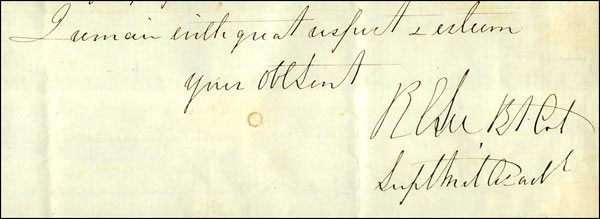 I remain with great respect & esteem
your Obt Sert
R E Lee Bt. Col
Supt Mil: Acad